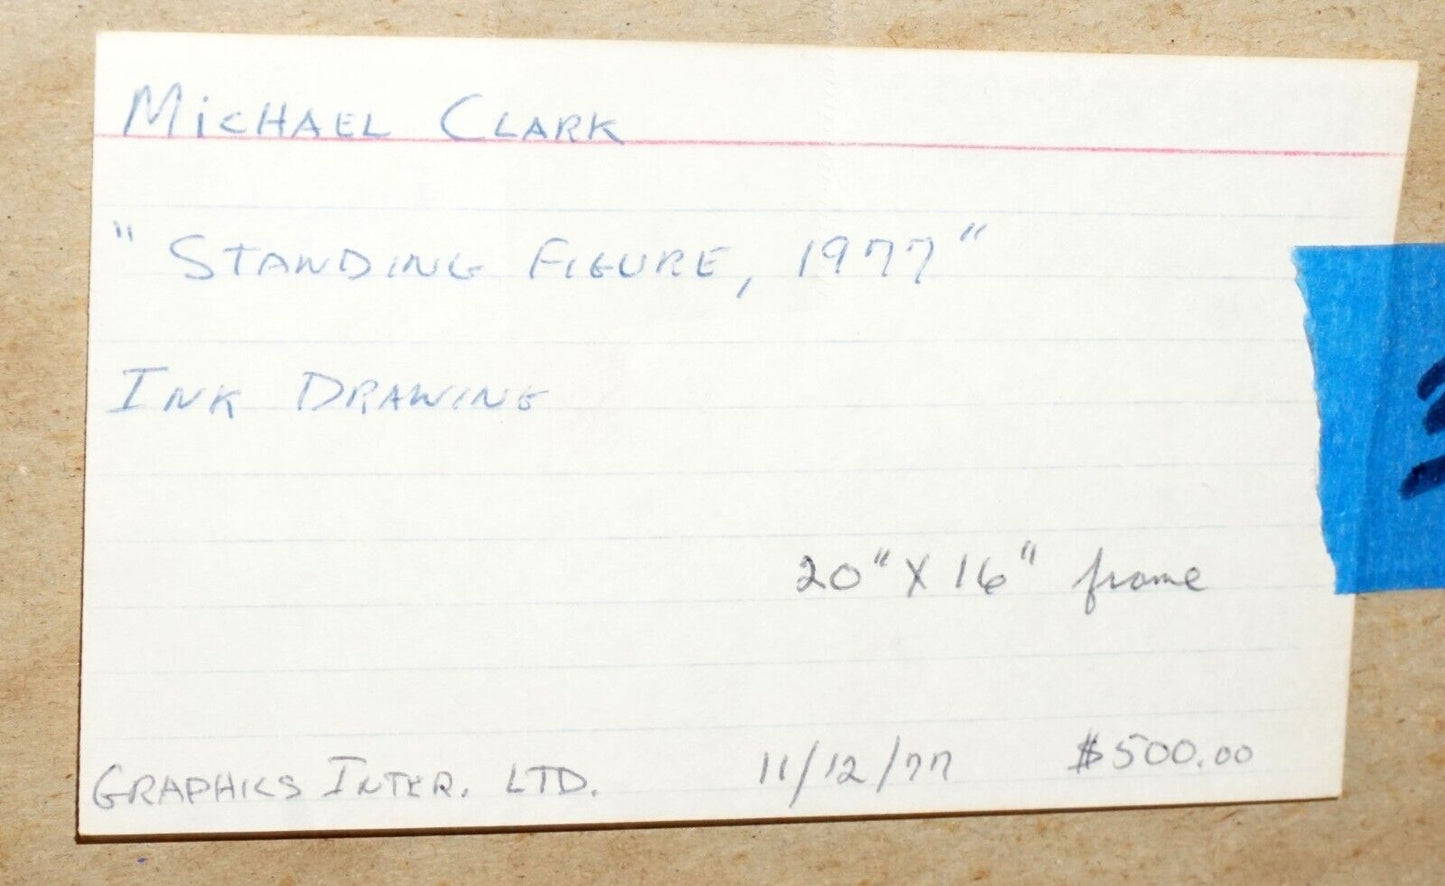 MiCHAEL CLARK
"STANDING FIGURE, 1977"
INK DRAWING
20" X 16" frame
GRAPHICS INTER. LTD. 11/12/77 $500.00